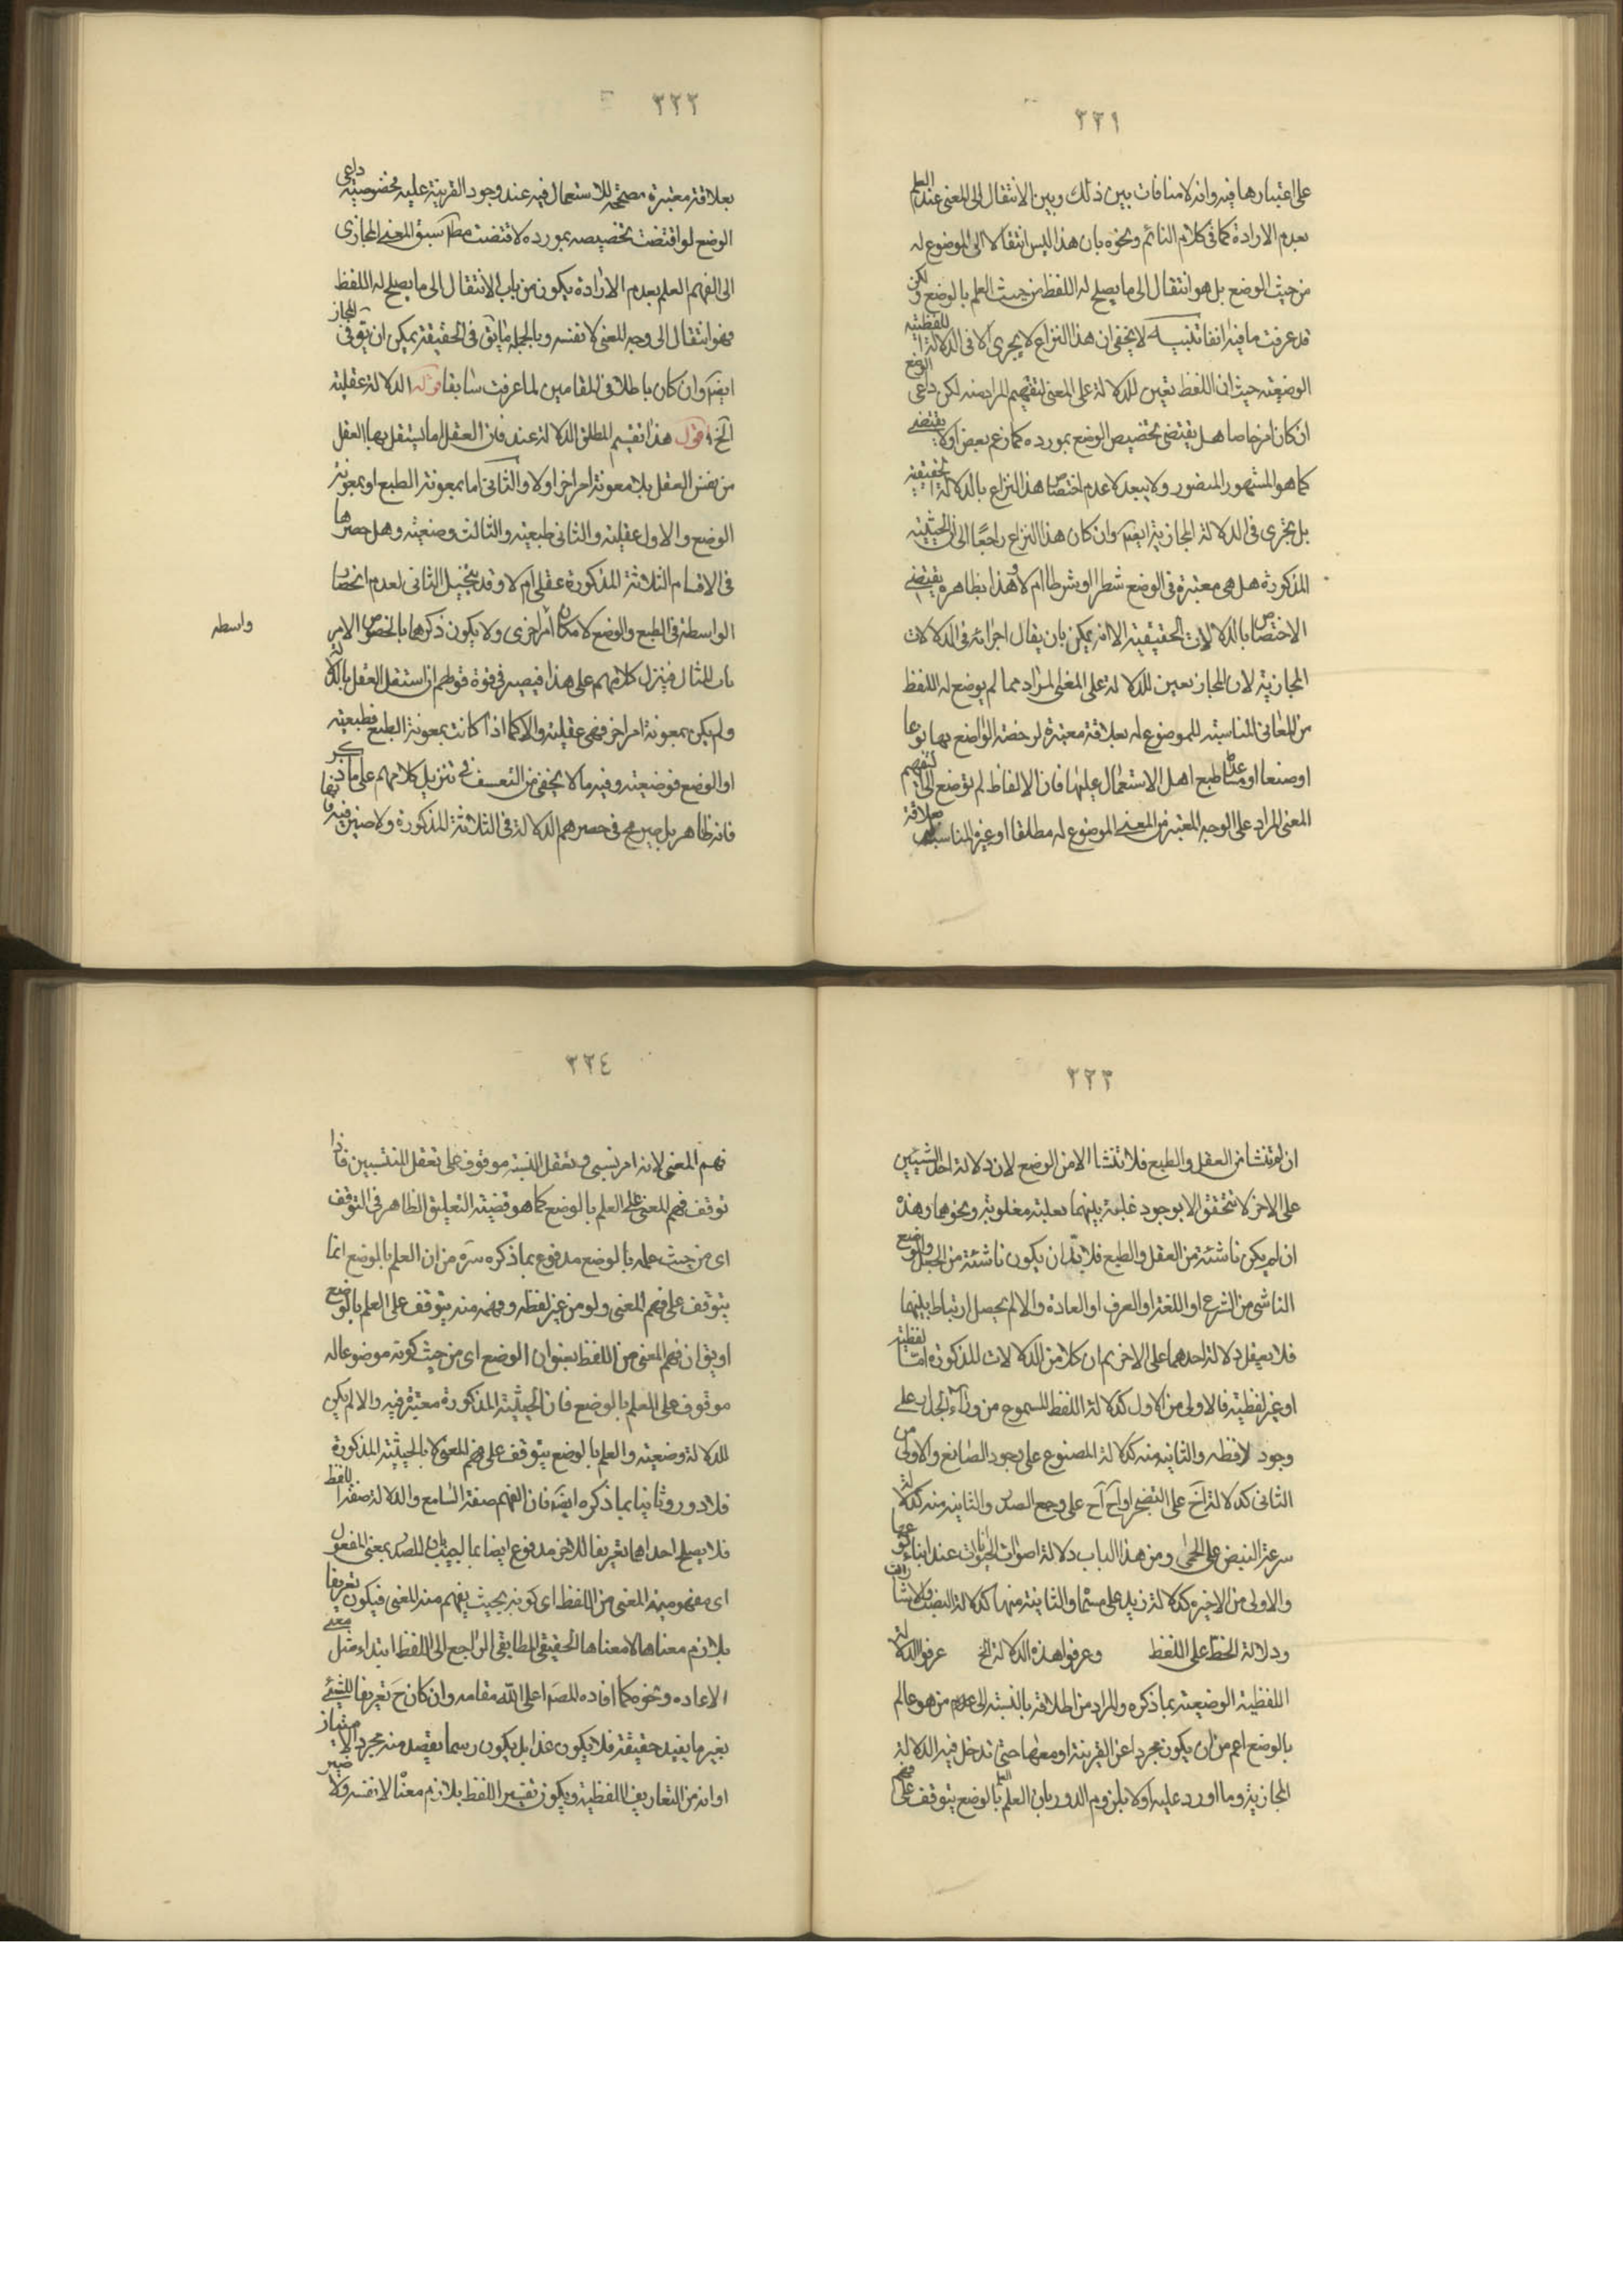 ٣٢١
على اعتبارها فيه وانه لا منافات بين ذلك وبين الانتقال الى المعنى عند العلم
بعدم الارادة كما فى كلام النائم ونحوه بان هذا ليس انتقالا الى الموضوع له
من حيث الوضع بل هو انتقال الى ما يصلح له اللفظ من حيث العلم بالوضع ولكن
قد عرفت ما فيه انفا تنبيه لا يخفى ان هذا النزاع لا يجرى الا فى الدلالة اللفظية
الوضعية حيث ان اللفظ تعين للدلالة على المعنى لتفهيم المراد منه لكن داعى الوضع
ان كان امرا خاصا هل يقتضى تخصيص الوضع بمورده كما زعم بعض اولا يقتضى
كما هو المشهور المنصور ولا يبعد عدم اختصاص هذا النزاع بالدلالة الحقيقية
بل يجرى فى الدلالة المجازية ايضا وان كان هذا النزاع راجعا الى ان الحيثية
المذكورة هل هى معتبرة فى الوضع شطرا او شرطا ام لا وهذا بظاهره يقتضى
الاختصاص بالدلالات الحقيقية الا انه يمكن بان يقال اجرائه فى الدلالات
المجازية لان المجاز تعين للدلالة على المعنى المراد مما لم يوضع له اللفظ
من المعانى المناسبة للموضوع له بعلاقة معتبرة لرخصة الواضع بها نوعا
او صنفا او مما طبع اهل الاستعمال عليها فان الالفاظ لم توضع الا لتفهيم
المعنى المراد على الوجه المعتبر من المعنى الموضوع له مطلقا او غيره المناسب له بعلاقة
٣٢٢
بعلاقة معتبرة مصححة للاستعمال فيه عند وجود القرينة عليه فخصوصية داعى
الوضع لو اقتضت تخصيصه بمورده لاقتضت مطلقا سبق المعنى المجازى
الى الفهم العلم بعدم الارادة يكون من باب الانتقال الى ما يصلح له اللفظ
فهو انتقال الى وجه المعنى لا نفسه وبالجملة ما يق فى الحقيقة يمكن ان يق فى المجاز
ايضا وان كان باطلا فى المقامين لما عرفت سابقا قوله الدلالة عقلية
الخ اقول هذا تقسيم لمطلق الدلالة عند فان العقل اما يستقل بها العقل
من نفس العقل بلا معونة امر اخر اولا والثانى اما بمعونة الطبع او بمعونة
الوضع والاول عقلية والثانى طبعية والثالث وضعية وهل حصرها
فى الاقسام الثلاثة المذكورة عقلى ام لا وقد يتخيل الثانى لعدم انحصار
الواسطة فى الطبع والوضع لامكان امر اخرى ولا يكون ذكرهما بالخصوص الا من
واسطه
باب المثال فينزل كلامهم على هذا فيصير فى قوة قولهم ان استقل العقل بالدلالة
ولم يكن بمعونة امر اخر فهى عقلية والا كما اذا كانت بمعونة الطبع فطبعية
او الوضع فوضعية وفيه ما لا يخفى من التعسف فى تنزيل كلامهم على ما ذكر
فانه ظاهر بل صريح فى حصرهم الدلالة فى الثلاثة المذكورة ولا ضير فيه فانها
٣٢٣
ان لم تنشا من العقل والطبع فلا تنشا الا من الوضع لان دلالة احد الشيئين
على الاخر لا تتحقق الا بوجود علقة بينهما بعلية معلولية ونحوهما وهذه
ان لم يكن ناشئة من العقل والطبع فلا بد ان يكون ناشئة من الجعل والوضع
الناشى من الشرع او اللغة او العرف او العادة والا لم يحصل ارتباط بينهما
فلا يعقل دلالة احدهما على الاخر ثم ان كلا من الدلالات المذكورة اما لفظية
او غير لفظية فالاولى من الاول كدلالة اللفظ المسموع من وراء الجدار على
وجود لافظه والثانية منه كدلالة المصنوع على وجود الصانع والاولى من
الثانى كدلالة اخ على التضجر او اح اح على وجع الصدر والثانية منه كدلالة
سرعة النبض على الحمى ومن هذا الباب دلالة اصوات الحيوانات عند ابناء نوعها
والاولى من الاخيرة كدلالة زيد على مسماه والثانية منها كدلالة النصب والاشارات
ودلالة الخط على اللفظ وعرفوا هذه الدلالة الخ عرفوا الدلالة
اللفظية الوضعية بما ذكره والمراد من اطلاقه بالنسبة الى علم من هو عالم
بالوضع اعم من ان يكون مجردا عن القرينة او معها حتى تدخل فيه الدلالة
المجازية وما اورد عليه اولا بلزوم الدور بان العلم بالوضع يتوقف على فهم
٣٢٤
فهم المعنى لانه امر نسبى وتعقل النسبة موقوف على تعقل المنتسبين فاذا
توقف فهم المعنى على العلم بالوضع كما هو قضية التعليق الظاهر فى التوقف
اى من حيث علمه بالوضع مدفوع بما ذكره سره من ان العلم بالوضع انما
يتوقف على فهم المعنى ولو من غير لفظه وفهمه منه يتوقف على العلم بالوضع
او يق ان فهم المعنى من اللفظ بعنوان الوضع اى من حيث كونه موضوعا له
موقوف على العلم بالوضع فان الحيثية المذكورة معتبرة فيه والا لم يكن
للدلالة وضعية والعلم بالوضع يتوقف على فهم المعنى لا بالحيثية المذكورة
فلا دور وثانيا بما ذكره ايضا فان الفهم صفة السامع والدلالة صفة اللفظ
فلا يصلح احداهما تعريفا للاخر مدفوع ايضا بما اجيب بان المصدر بمعنى المفعول
اى مفهومية المعنى من اللفظ اى كونه بحيث يفهم منه المعنى فيكون تعريفا
بلازم معناها لا معناها الحقيقى المطابقى الراجع الى اللفظ ابتداء مثل معنى
الاعاده ونحوه كما افاده المصر اعلى الله مقامه وان كان ح تعريفا للشيئ
بغير ما يفيد حقيقة فلا يكون حدا بل يكون رسما يقصد منه مجرد الامتياز
او انه من التعاريف اللفظية ويكون تفسير اللفظ بلازم معناه لا نفسه ولا ضير